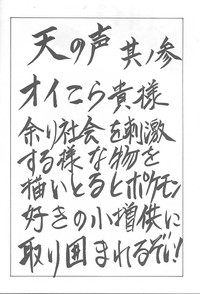 天の声 其ノ参
オイこら貴様
余り社会を刺激
する様な物を
描いとるとポケモン
好きの小増供に
取り囲まれるぞい!